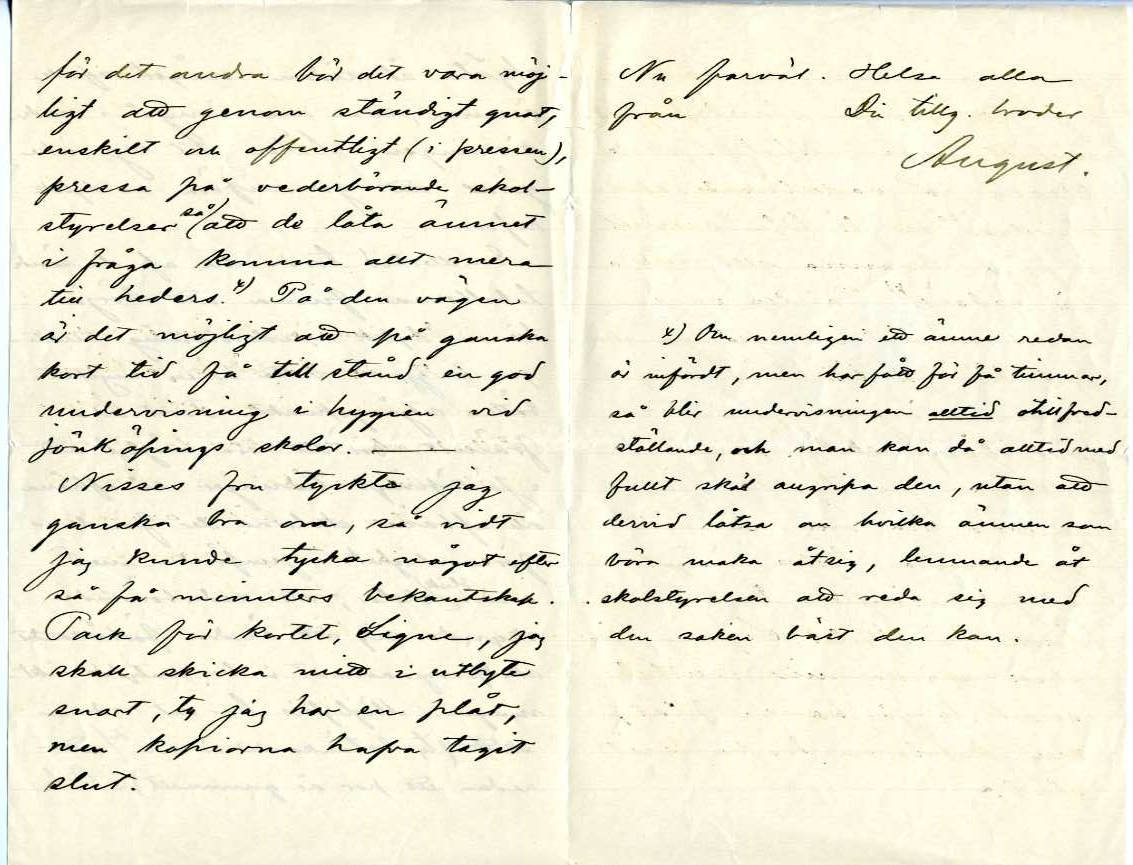 för det andra bör det vara möj-
ligt att genom ständigt gnat,
enskilt och offentligt (i pressen),
pressa på vederbörande skol-
styrelser så att de låta ämnet
i fråga komma allt mera
till heders.x) På den vägen
är det möjligt att på ganska
kort tid få till stånd en god
undervisning i hygien vid
jönköpings skolor. ——
Nisses fru tyckte jag
ganska bra om, så vidt
jag kunde tycka något efter
så få minuters bekantskap.
Tack för kortet, Signe, jag
skall skicka mitt i utbyte
snart, ty jag har en plåt,
men kopiorna hafva tagit
slut.
Nu farväl. Helsa alla
från Din tillg. broder
August.
x) Om nemligen ett ämne redan
är infördt, men har fått för få timmar,
så blir undervisningen alltid otillfred-
ställande, och man kan då alltid med
fullt skäl angripa den, utan att
dervid låtsa om hvilka ämnen som
böra maka åt sig, lemnande åt
skolstyrelsen att reda sig med
den saken bäst den kan.